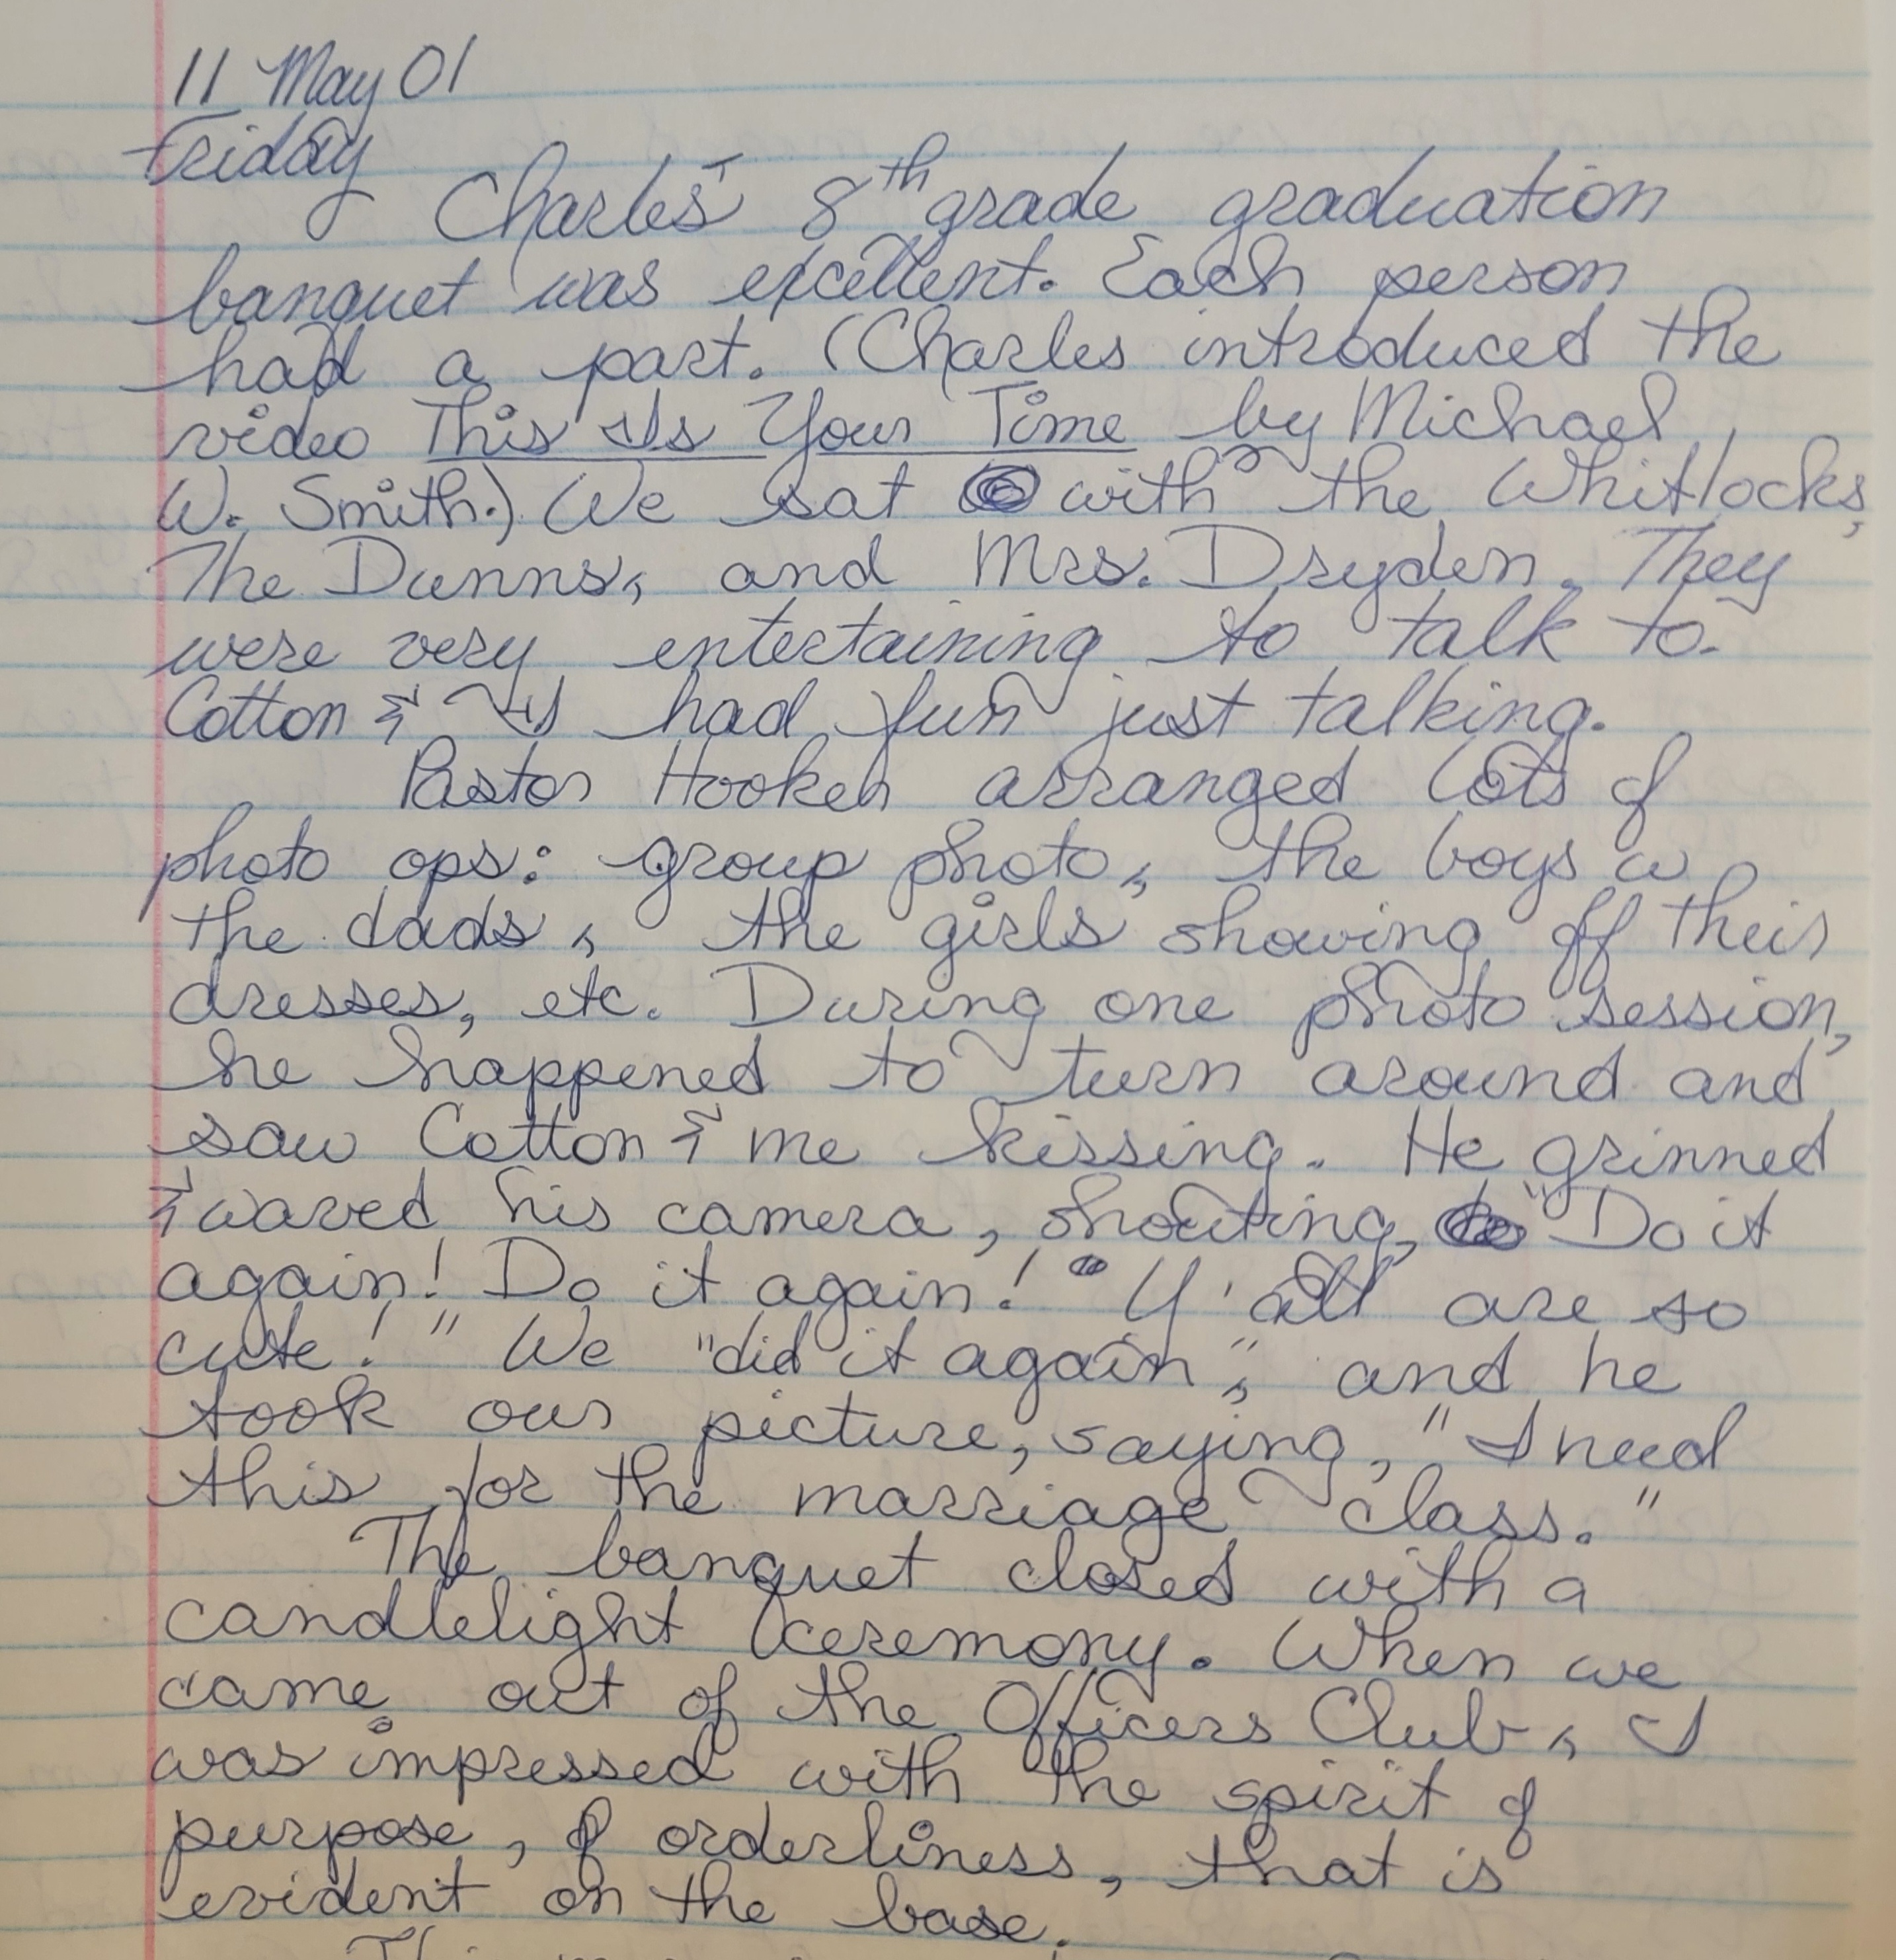 11 May 01
Friday
Charles' 8th grade graduation
banquet was excellent. Each person
had a part. (Charles introduced the
video This Is Your Time by Michael
W. Smith.) We sat with the Whitlocks,
The Dunns, and Mrs. Dryden. They
were very entertaining to talk to.
Cotton & I had fun just talking.
Pastor Hooker arranged lots of
photo ops: group photo, the boys w
the dads, the girls showing off their
dresses, etc. During one photo session,
he happened to turn around and
saw Cotton & me kissing. He grinned
& waved his camera, shouting, "Do it
again! Do it again! Y'all are so
cute!" We "did it again", and he
took our picture, saying, "I need
this for the marriage class."
The banquet closed with a
candlelight ceremony. When we
came out of the Officers Club, I
was impressed with the spirit of
purpose, of orderliness, that is
evident on the base.